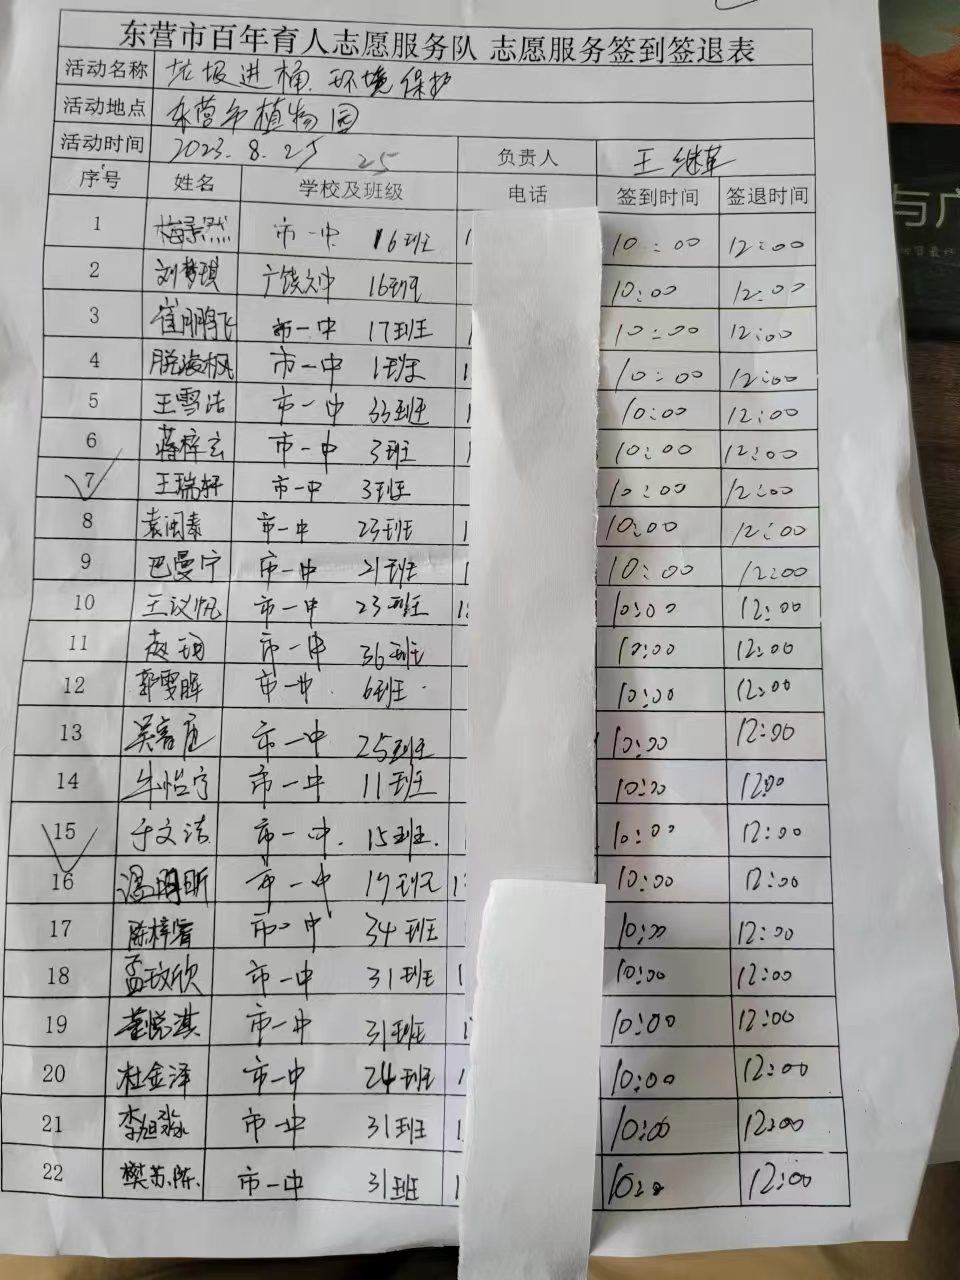 东营市百年育人志愿服务队 志愿服务签到签退表
活动名称 垃圾进桶 环境保护
活动地点 东营市植物园
活动时间 2023.8.25 25 负责人 王继革
序号 姓名 学校及班级 电话 签到时间 签退时间
1 梅景然 市一中 16班 10:00 12:00
2 刘梦琪 广饶 16班 10:00 12:00
3 崔鹏飞 市一中 17班 10:00 12:00
4 市一中 1班 10:00 12:00
5 王雪洁 市一中 33班 10:00 12:00
6 蒋梓玄 市一中 3班 10:00 12:00
7 王瑞轩 市一中 3班 10:00 12:00
8 袁闽泰 市一中 23班 10:00 12:00
9 巴曼宁 市一中 21班 10:00 12:00
10 王议帆 市一中 23班 10:00 12:00
11 赵珂 市一中 36班 10:00 12:00
12 郭雯晖 市一中 6班 10:00 12:00
13 市一中 25班 10:00 12:00
14 牛怡宁 市一中 11班 10:00 12:00
15 于文洁 市一中 15班 10:00 12:00
16 市一中 19班 10:00 12:00
17 陈梓睿 市一中 34班 10:00 12:00
18 孟玟欣 市一中 31班 10:00 12:00
19 董悦淇 市一中 31班 10:00 12:00
20 杜金泽 市一中 24班 10:00 12:00
21 李旭淼 市一中 31班 10:00 12:00
22 樊苏陈 市一中 31班 10:00 12:00
与广